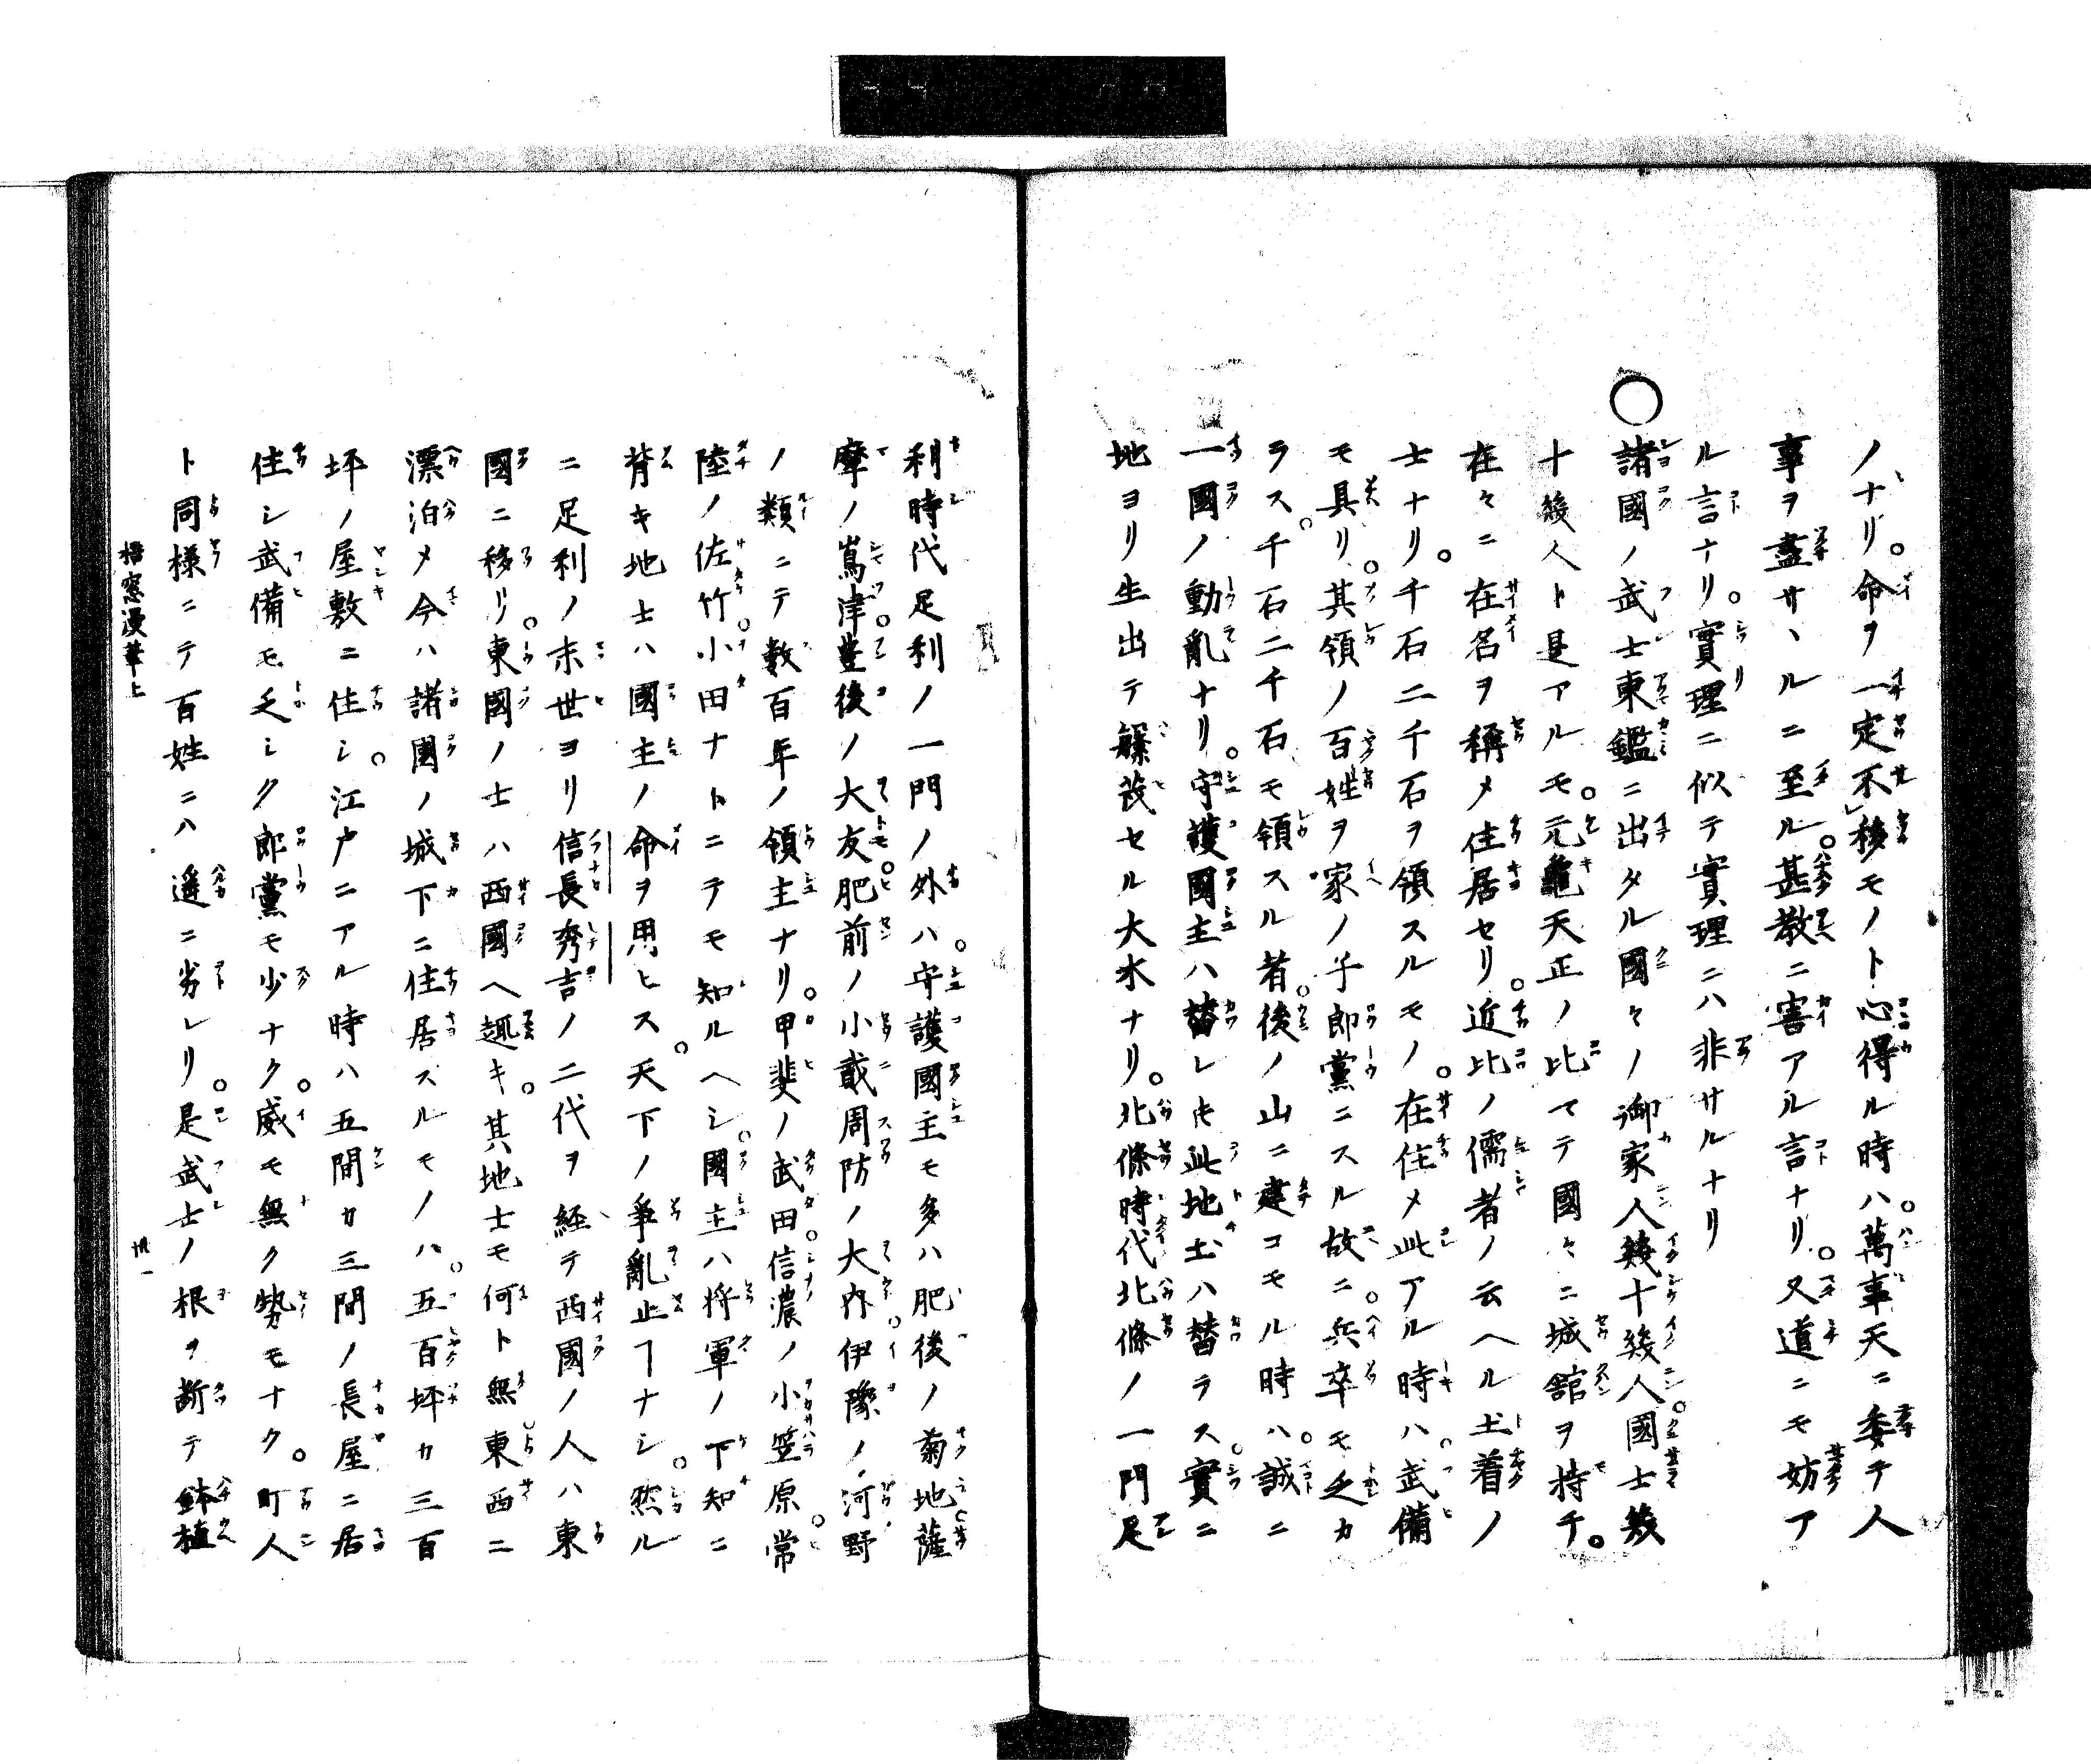 ノナリ。命ヲ一定不移モノト心得ル時ハ。萬事天ニ委チ人
事ヲ盡サヽルニ至ル。甚教ニ害アル言ナリ。又道ニモ妨ア
ル言ナリ。實理ニ似テ實理ニハ非サルナリ
○諸國ノ武士東鑑ニ出タル國々ノ御家人幾十幾人。國士幾
十幾人ト是アルモ。元龜天正ノ比マテ國々ニ城舘ヲ持チ。
在々ニ在名ヲ稱メ住居セリ。近比ノ儒者ノ云ヘル土着ノ
士ナリ。千石二千石ヲ領スルモノ。在住メ此アル時ハ。武備
モ具リ。其領ノ百姓ヲ家ノ子郎黨ニスル故ニ。兵卒モ乏カ
ラス。千石二千石モ領スル者。後ノ山ニ建コモル時ハ。誠ニ
一國ノ動亂ナリ。守護國主ハ替レ𪜈此地士ハ替ラス。實ニ
地ヨリ生出テ緜蔓セル大木ナリ。北條時代北條ノ一門足
利時代足利ノ一門ノ外ハ。守護國主モ多ハ肥後ノ菊地薩
摩ノ嶌津。豊後ノ大友。肥前ノ小貳周防ノ大内。伊豫ノ河野
ノ類ニテ數百年ノ領主ナリ。甲斐ノ武田。信濃ノ小笠原。常
陸ノ佐竹。小田ナトニテモ知ルヘシ。國主ハ将軍ノ下知ニ
背キ地士ハ國主ノ命ヲ用ヒス。天下ノ爭亂止ヿナシ。然ル
ニ足利ノ末世ヨリ信長秀吉ノ二代ヲ経テ西國ノ人ハ東
國ニ移リ。東國ノ士ハ西國ヘ趣キ。其地士モ何ト無東西ニ
漂泊メ今ハ諸國ノ城下ニ住居スルモノハ。五百坪カ三百
坪ノ屋敷ニ住シ。江戸ニアル時ハ五間カ三間ノ長屋ニ居
住シ武備モ乏シク郎黨モ少ナク。威モ無ク勢モナク。町人
ト同様ニテ百姓ニハ遥ニ劣レリ。是武士ノ根ヲ断テ鉢植
梧窓漫筆上
卅一